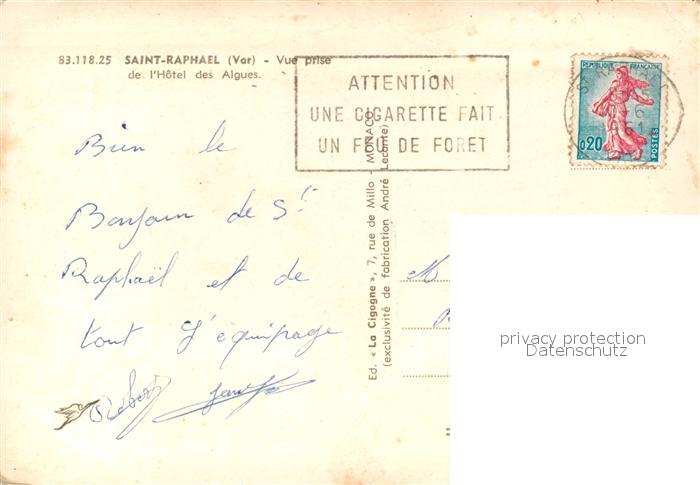 83.118.25 SAINT-RAPHAEL (Var) - Vue prise
de l'Hôtel des Algues.
ATTENTION
UNE CIGARETTE FAIT
UN FEU DE FORET
REPUBLIQUE FRANÇAISE
0,20
POSTES
Bien le
Bonjour de St
Raphaël et de
tout l'équipage
Ed. « La Cigogne », 7, rue de Millo - MONACO
(exclusivité de fabrication André Leconte)
M
privacy protection
Datenschutz